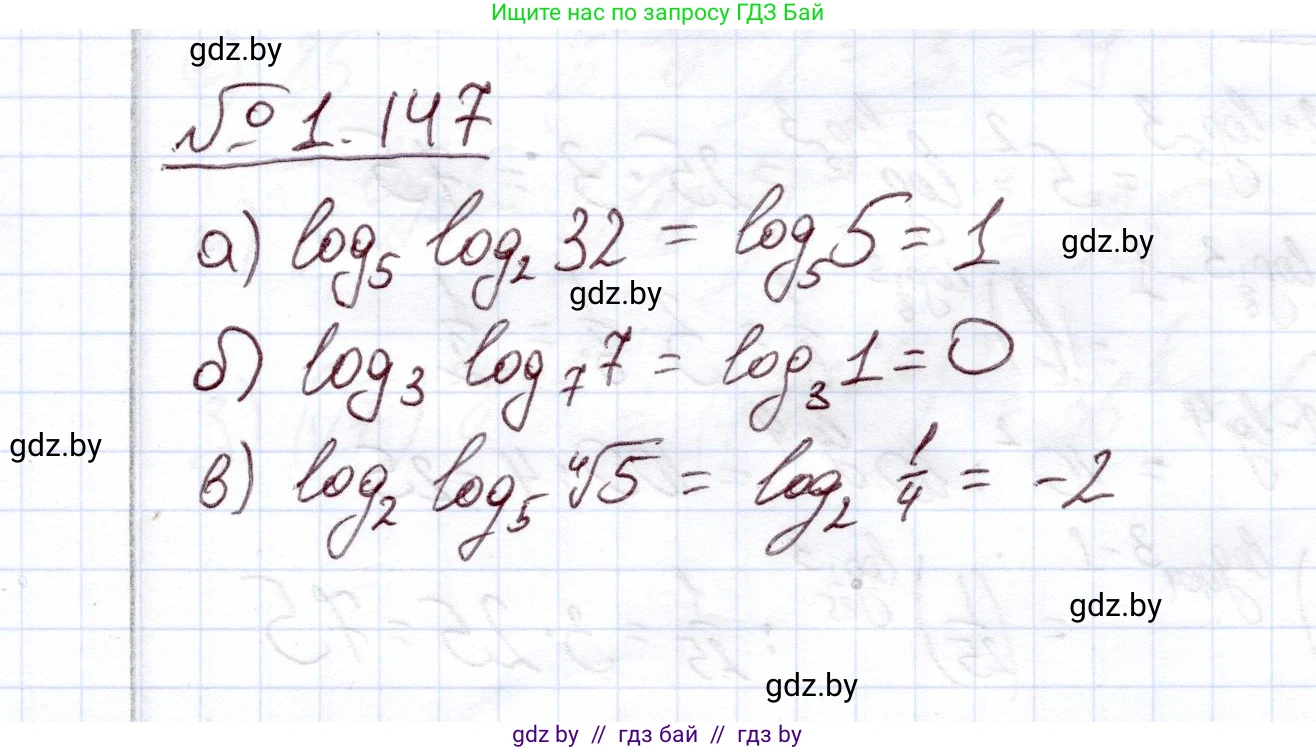 Ищите нас по запросу ГДЗ Бай
gdz.by
№ 1.147
а) log₅ log₂ 32 = log₅ 5 = 1
gdz.by
gdz.by
б) log₃ log₇ 7 = log₃ 1 = 0
gdz.by
в) log₂ log₅ ⁴√5 = log₂ 1/4 = -2
gdz.by
gdz.by
gdz by // гдз бай // гдз by